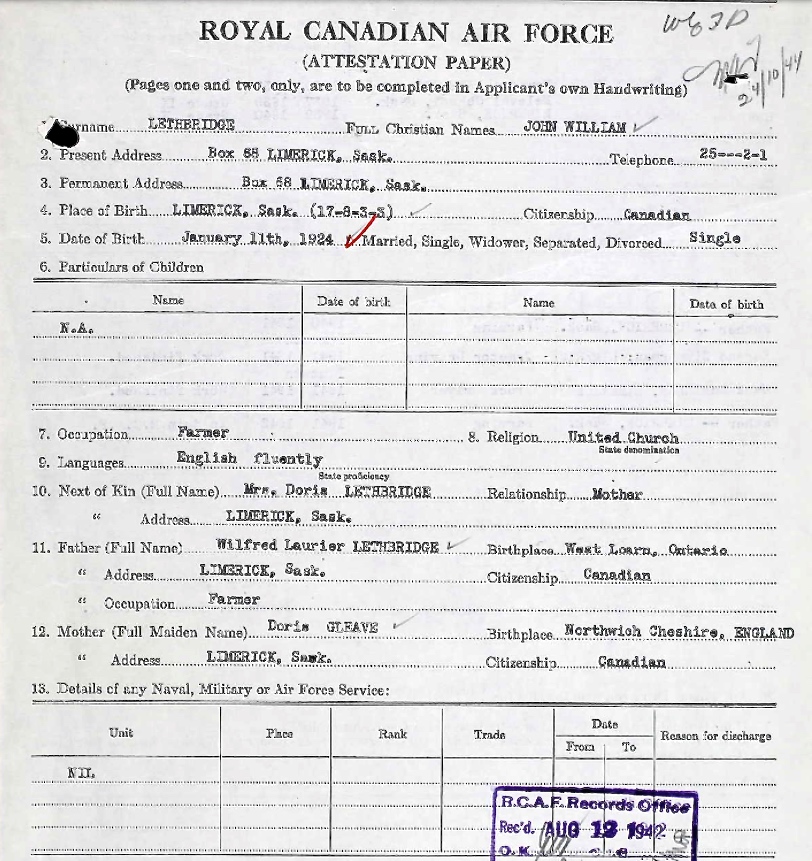 ROYAL CANADIAN AIR FORCE
(ATTESTATION PAPER)
(Pages one and two, only, are to be completed in Applicant's own Handwriting)
24/10/44
Surname LETHBRIDGE FULL Christian Names JOHN WILLIAM
2. Present Address Box 68 LIMERICK, Sask. Telephone 25---2-1
3. Permanent Address Box 68 LIMERICK, Sask.
4. Place of Birth LIMERICK, Sask. (17-8-3-3) Citizenship Canadian
5. Date of Birth January 11th, 1924 Married, Single, Widower, Separated, Divorced Single
6. Particulars of Children
Name Date of birth Name Date of birth
N.A.
7. Occupation Farmer 8. Religion United Church
State denomination
9. Languages English fluently
State proficiency
10. Next of Kin (Full Name) Mrs. Doris LETHBRIDGE Relationship Mother
" Address LIMERICK, Sask.
11. Father (Full Name) Wilfred Laurier LETHBRIDGE Birthplace West Lorn, Ontario
" Address LIMERICK, Sask. Citizenship Canadian
" Occupation Farmer
12. Mother (Full Maiden Name) Doris GLEAVE Birthplace Northwich Cheshire, ENGLAND
" Address LIMERICK, Sask. Citizenship Canadian
13. Details of any Naval, Military or Air Force Service:
Unit Place Rank Trade Date Reason for discharge
From To
NIL
R.C.A.F. Records Office
Rec'd. AUG 13 1942
O.K.